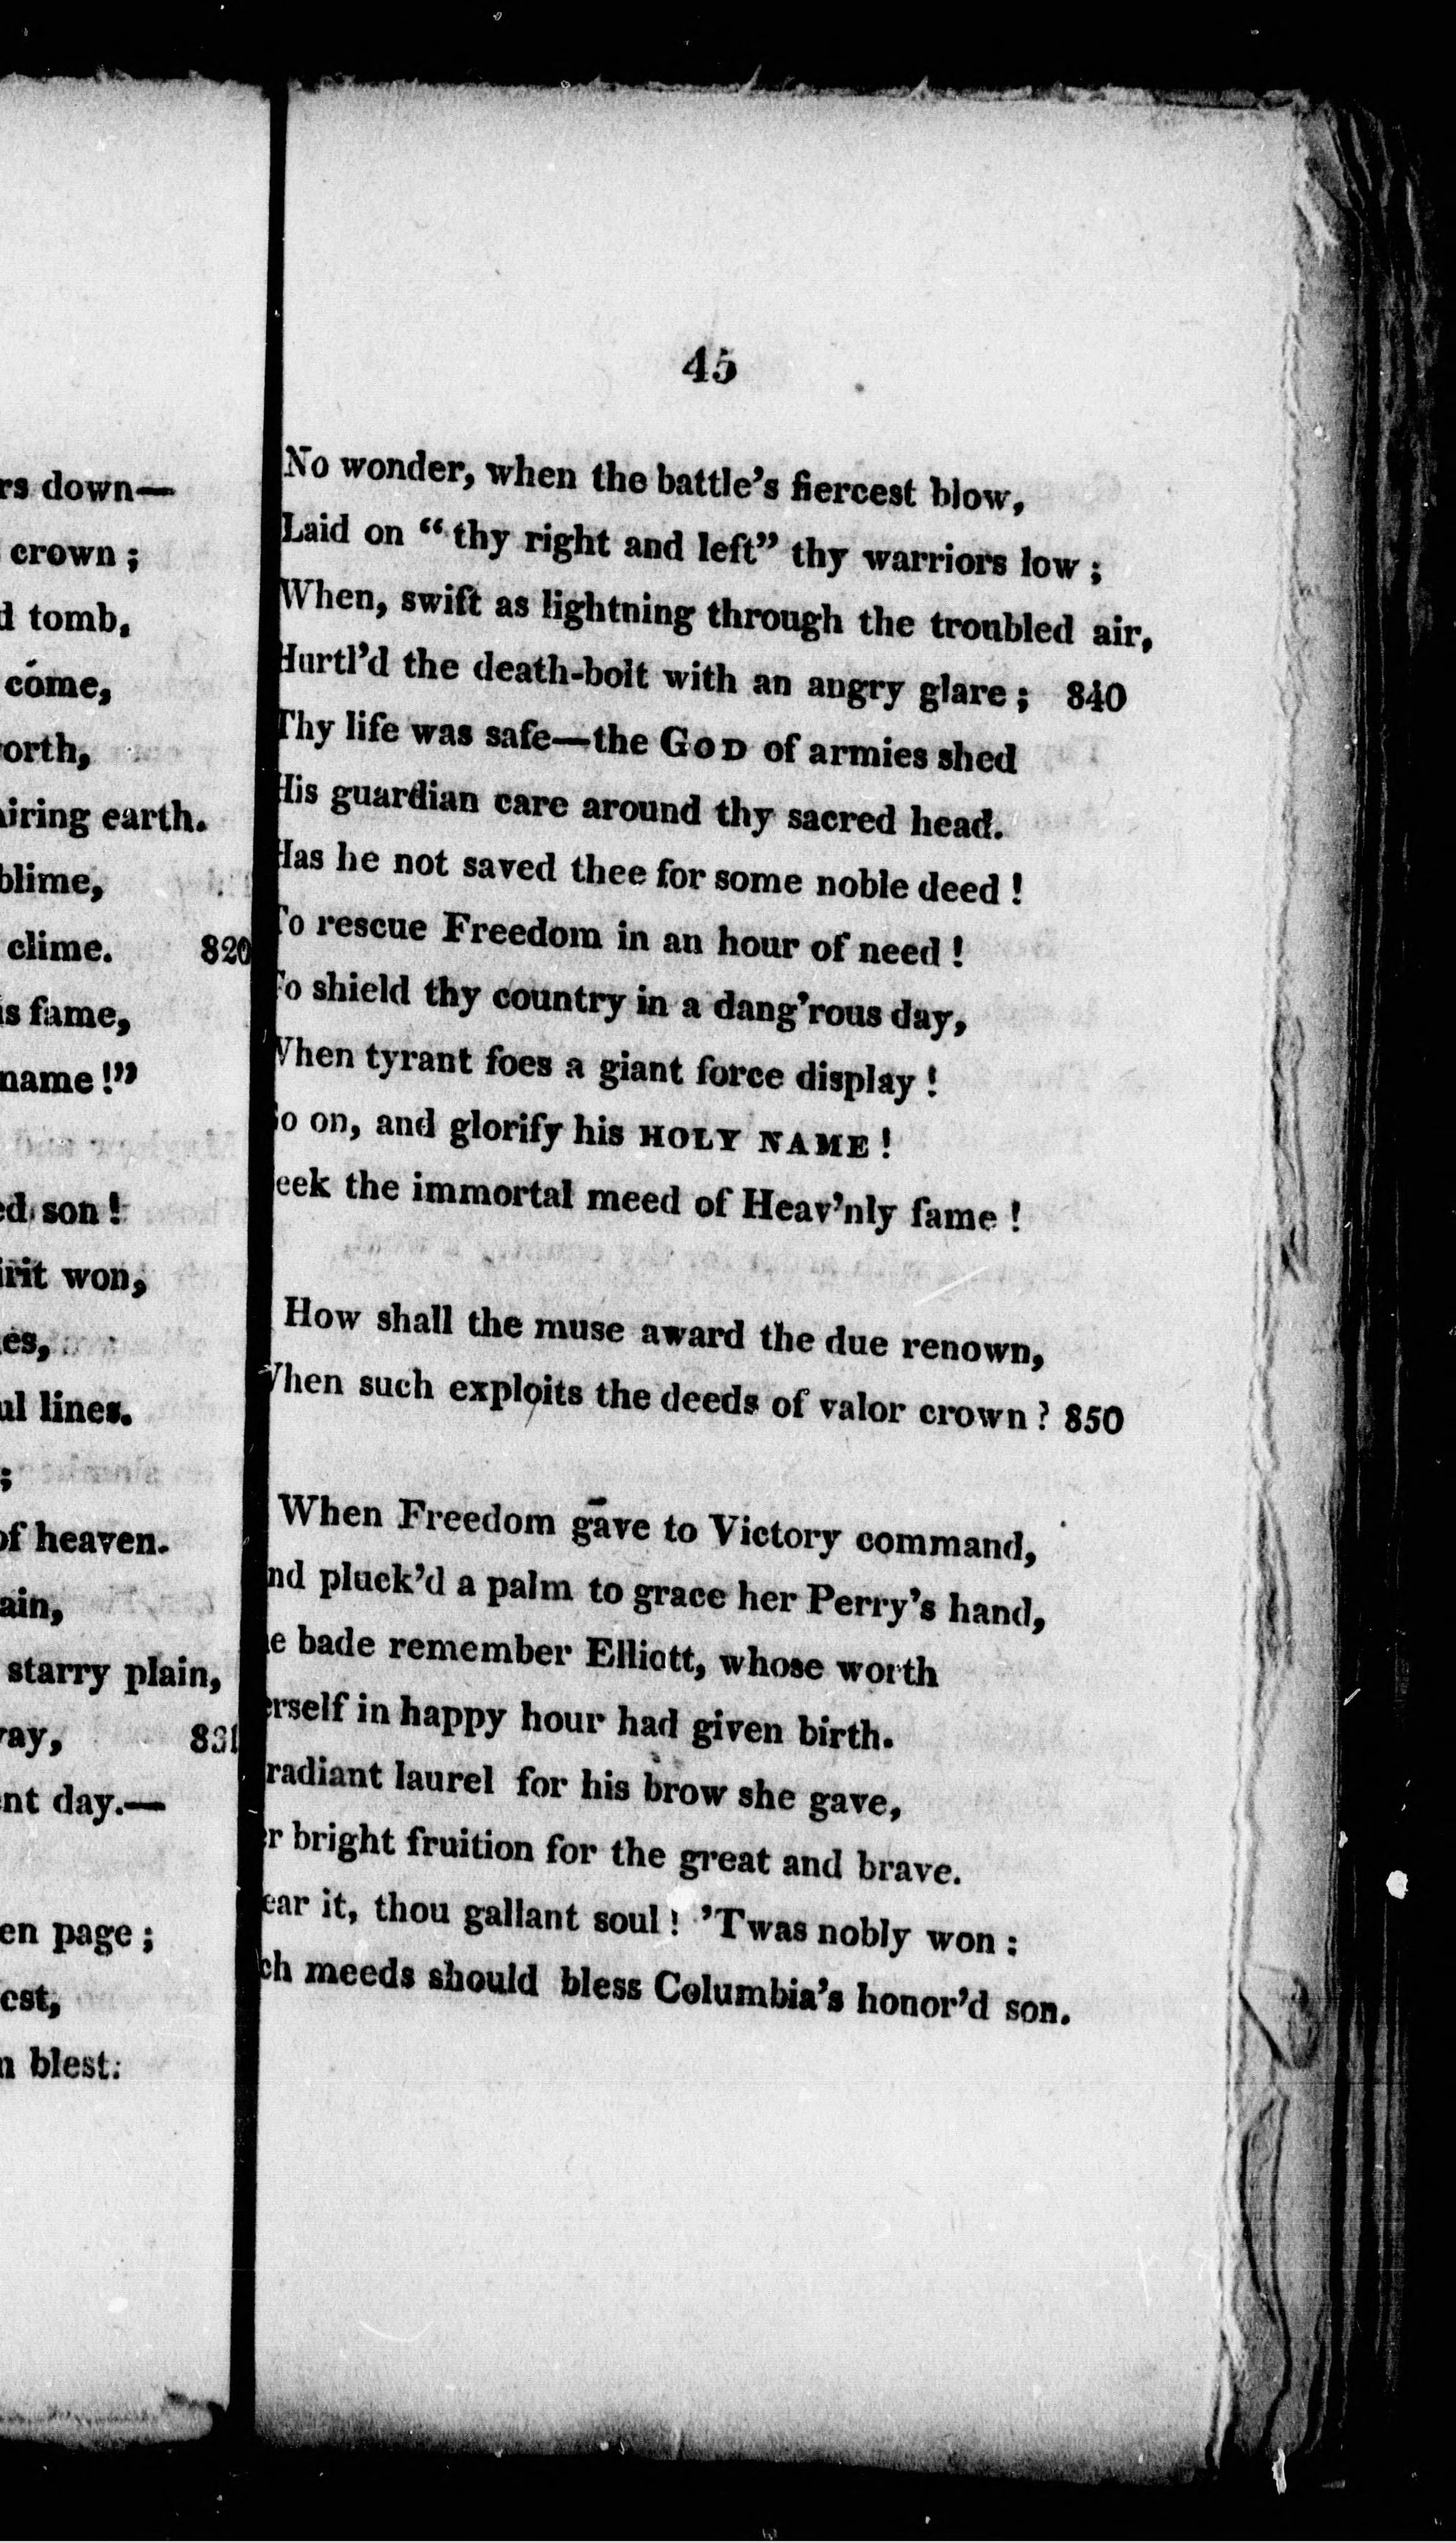 down—
crown;
tomb,
come,
earth.
clime. 820
fame,
name!"
son!
won,
lines.
of heaven.
starry plain,
day.—
page;
blest.
45
No wonder, when the battle's fiercest blow,
Laid on "thy right and left" thy warriors low;
When, swift as lightning through the troubled air,
Hurtl'd the death-bolt with an angry glare; 840
Thy life was safe—the GOD of armies shed
His guardian care around thy sacred head.
Has he not saved thee for some noble deed!
To rescue Freedom in an hour of need!
To shield thy country in a dang'rous day,
When tyrant foes a giant force display!
on, and glorify his HOLY NAME!
eek the immortal meed of Heav'nly fame!
How shall the muse award the due renown,
When such exploits the deeds of valor crown? 850
When Freedom gave to Victory command,
nd pluck'd a palm to grace her Perry's hand,
e bade remember Elliott, whose worth
erself in happy hour had given birth.
radiant laurel for his brow she gave,
r bright fruition for the great and brave.
ear it, thou gallant soul! 'Twas nobly won:
ch meeds should bless Columbia's honor'd son.